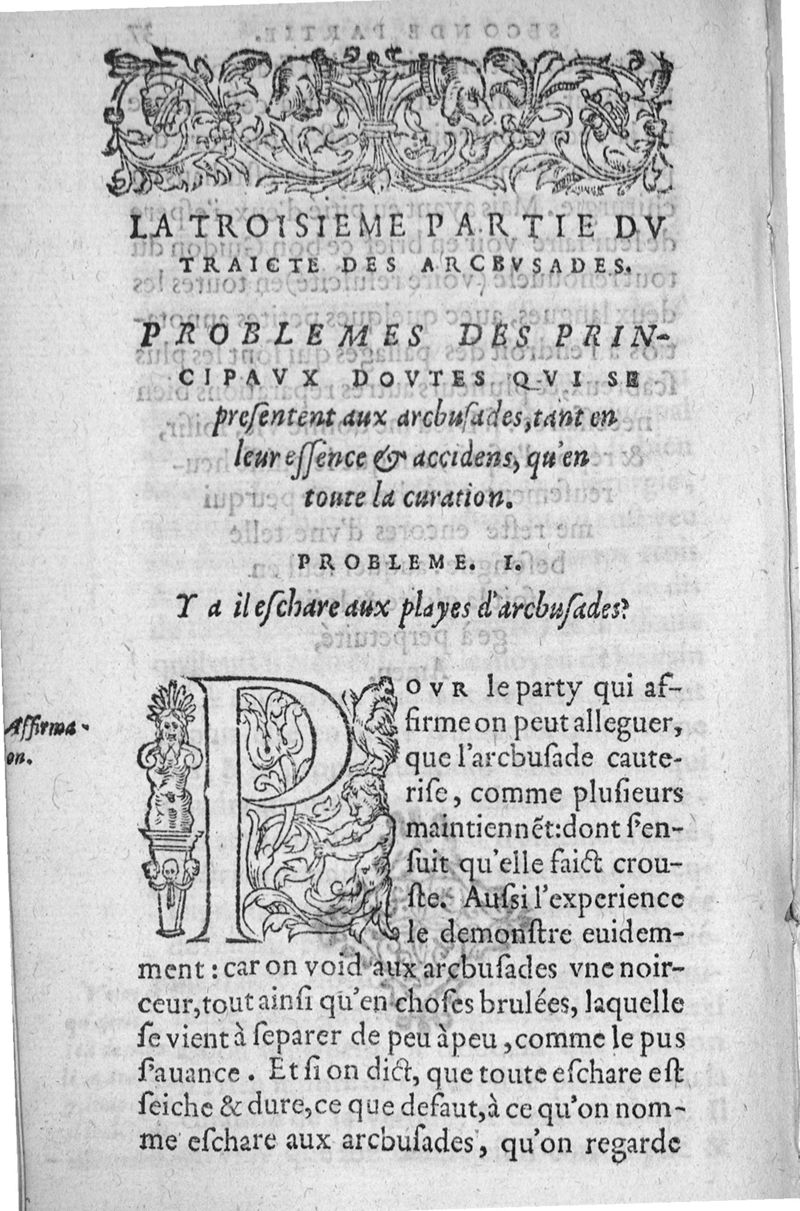 LA TROISIEME PARTIE DV
TRAICTE DES ARCBVSADES.
PROBLEMES DES PRIN-
CIPAVX DOVTES QVI SE
preſentent aux arcbuſades, tant en
leur eſſence & accidens, qu'en
toute la curation.
PROBLEME. I.
Y a il eſchare aux playes d'arcbuſades?
Affirma-
on.
POVR le party qui af-
firme on peut alleguer,
que l'arcbuſade caute-
riſe, comme pluſieurs
maintiennẽt: dont ſ'en-
ſuit qu'elle faict crou-
ſte. Auſsi l'experience
le demonſtre euidem-
ment: car on void aux arcbuſades vne noir-
ceur, tout ainſi qu'en choſes brulées, laquelle
ſe vient à ſeparer de peu à peu, comme le pus
ſ'auance. Et ſi on dict, que toute eſchare eſt
ſeiche & dure, ce que defaut, à ce qu'on nom-
me eſchare aux arcbuſades, qu'on regarde